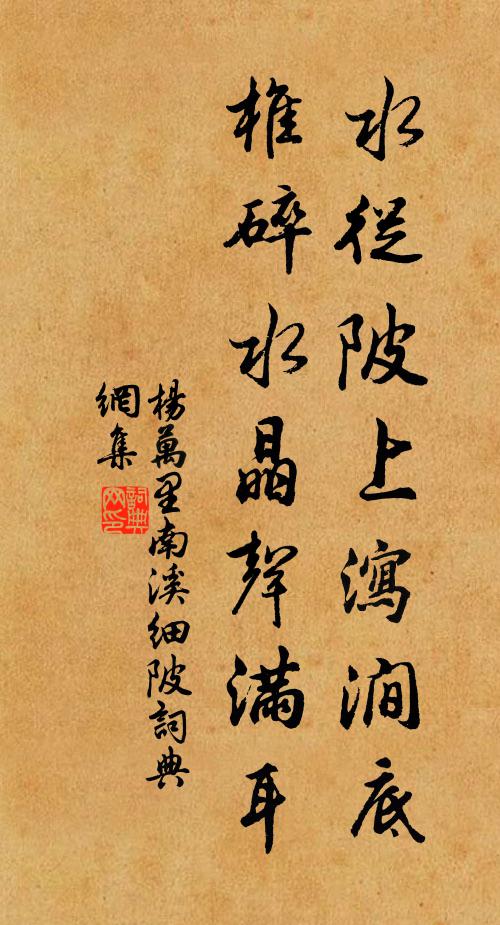 水從陂上瀉澗底
椎碎水晶聲滿耳
楊萬里南溪細陂詞典
網集
詞典
网印